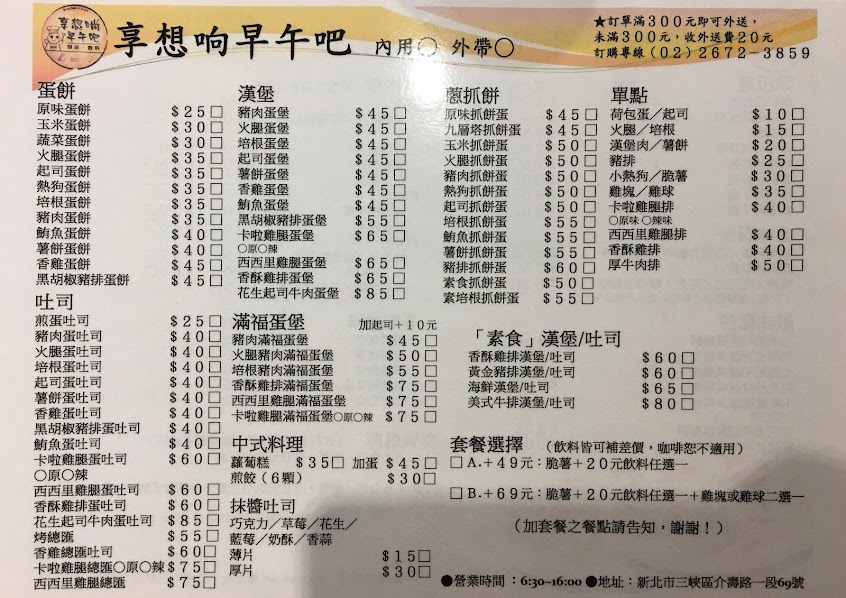 享想响
早午吧
享想响早午吧 內用○ 外帶○
★訂單滿300元即可外送，
未滿300元，收外送費20元
訂購專線(02)2672-3859
蛋餅
原味蛋餅 $25□
玉米蛋餅 $30□
蔬菜蛋餅 $30□
火腿蛋餅 $35□
起司蛋餅 $35□
熱狗蛋餅 $35□
培根蛋餅 $35□
豬肉蛋餅 $35□
鮪魚蛋餅 $40□
薯餅蛋餅 $40□
香雞蛋餅 $45□
黑胡椒豬排蛋餅 $45□
吐司
煎蛋吐司 $25□
豬肉蛋吐司 $40□
火腿蛋吐司 $40□
培根蛋吐司 $40□
起司蛋吐司 $40□
薯餅蛋吐司 $40□
香雞蛋吐司 $40□
黑胡椒豬排蛋吐司 $40□
鮪魚蛋吐司 $40□
卡啦雞腿蛋吐司 $60□
○原○辣
西西里雞腿蛋吐司 $60□
香酥雞排蛋吐司 $60□
花生起司牛肉蛋吐司 $85□
烤總匯 $55□
香雞總匯吐司 $60□
卡啦雞腿總匯○原○辣 $75□
西西里雞腿總匯 $75□
漢堡
豬肉蛋堡 $45□
火腿蛋堡 $45□
培根蛋堡 $45□
起司蛋堡 $45□
薯餅蛋堡 $45□
香雞蛋堡 $45□
鮪魚蛋堡 $45□
黑胡椒豬排蛋堡 $55□
卡啦雞腿蛋堡 $65□
○原○辣
西西里雞腿蛋堡 $65□
香酥雞排蛋堡 $65□
花生起司牛肉蛋堡 $85□
滿福蛋堡 加起司+10元
豬肉滿福蛋堡 $45□
火腿豬肉滿福蛋堡 $50□
培根豬肉滿福蛋堡 $55□
香酥雞排滿福蛋堡 $75□
西西里雞腿滿福蛋堡 $75□
卡啦雞腿滿福蛋堡○原○辣 $75□
中式料理
蘿蔔糕 $35□ 加蛋 $45□
煎餃(6顆) $30□
抹醬吐司
巧克力／草莓／花生／
藍莓／奶酥／香蒜
薄片 $15□
厚片 $30□
蔥抓餅
原味抓餅蛋 $45□
九層塔抓餅蛋 $45□
玉米抓餅蛋 $50□
火腿抓餅蛋 $50□
豬肉抓餅蛋 $50□
熱狗抓餅蛋 $50□
起司抓餅蛋 $50□
培根抓餅蛋 $55□
鮪魚抓餅蛋 $55□
薯餅抓餅蛋 $55□
豬排抓餅蛋 $60□
素食抓餅蛋 $50□
素培根抓餅蛋 $55□
單點
荷包蛋／起司 $10□
火腿／培根 $15□
漢堡肉／薯餅 $20□
豬排 $25□
小熱狗／脆薯 $30□
雞塊／雞球 $35□
卡啦雞腿排 $40□
○原味 ○辣味
西西里雞腿排 $40□
香酥雞排 $40□
厚牛肉排 $50□
「素食」漢堡/吐司
香酥雞排漢堡/吐司 $60□
黃金豬排漢堡/吐司 $60□
海鮮漢堡/吐司 $65□
美式牛排漢堡/吐司 $80□
套餐選擇 （飲料皆可補差價，咖啡恕不適用）
□A.+49元：脆薯+20元飲料任選一
□B.+69元：脆薯+20元飲料任選一+雞塊或雞球二選一
（加套餐之餐點請告知，謝謝！）
●營業時間：6:30~16:00 ●地址：新北市三峽區介壽路一段69號